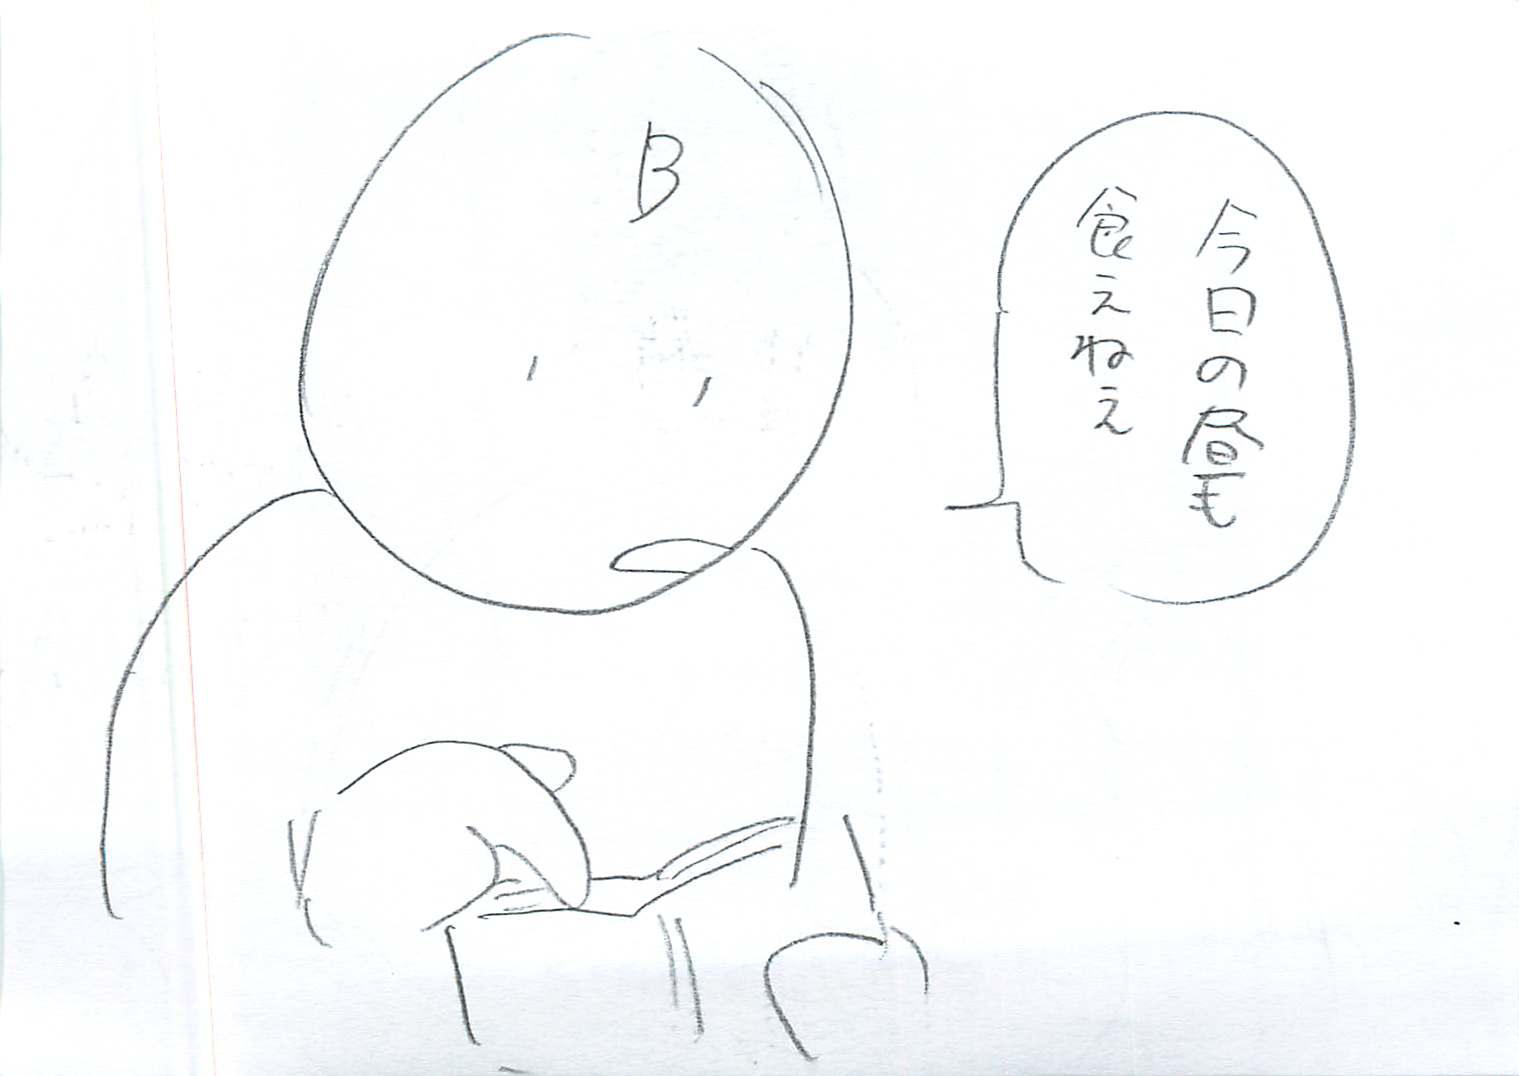 B
今日の昼も
食えねえ